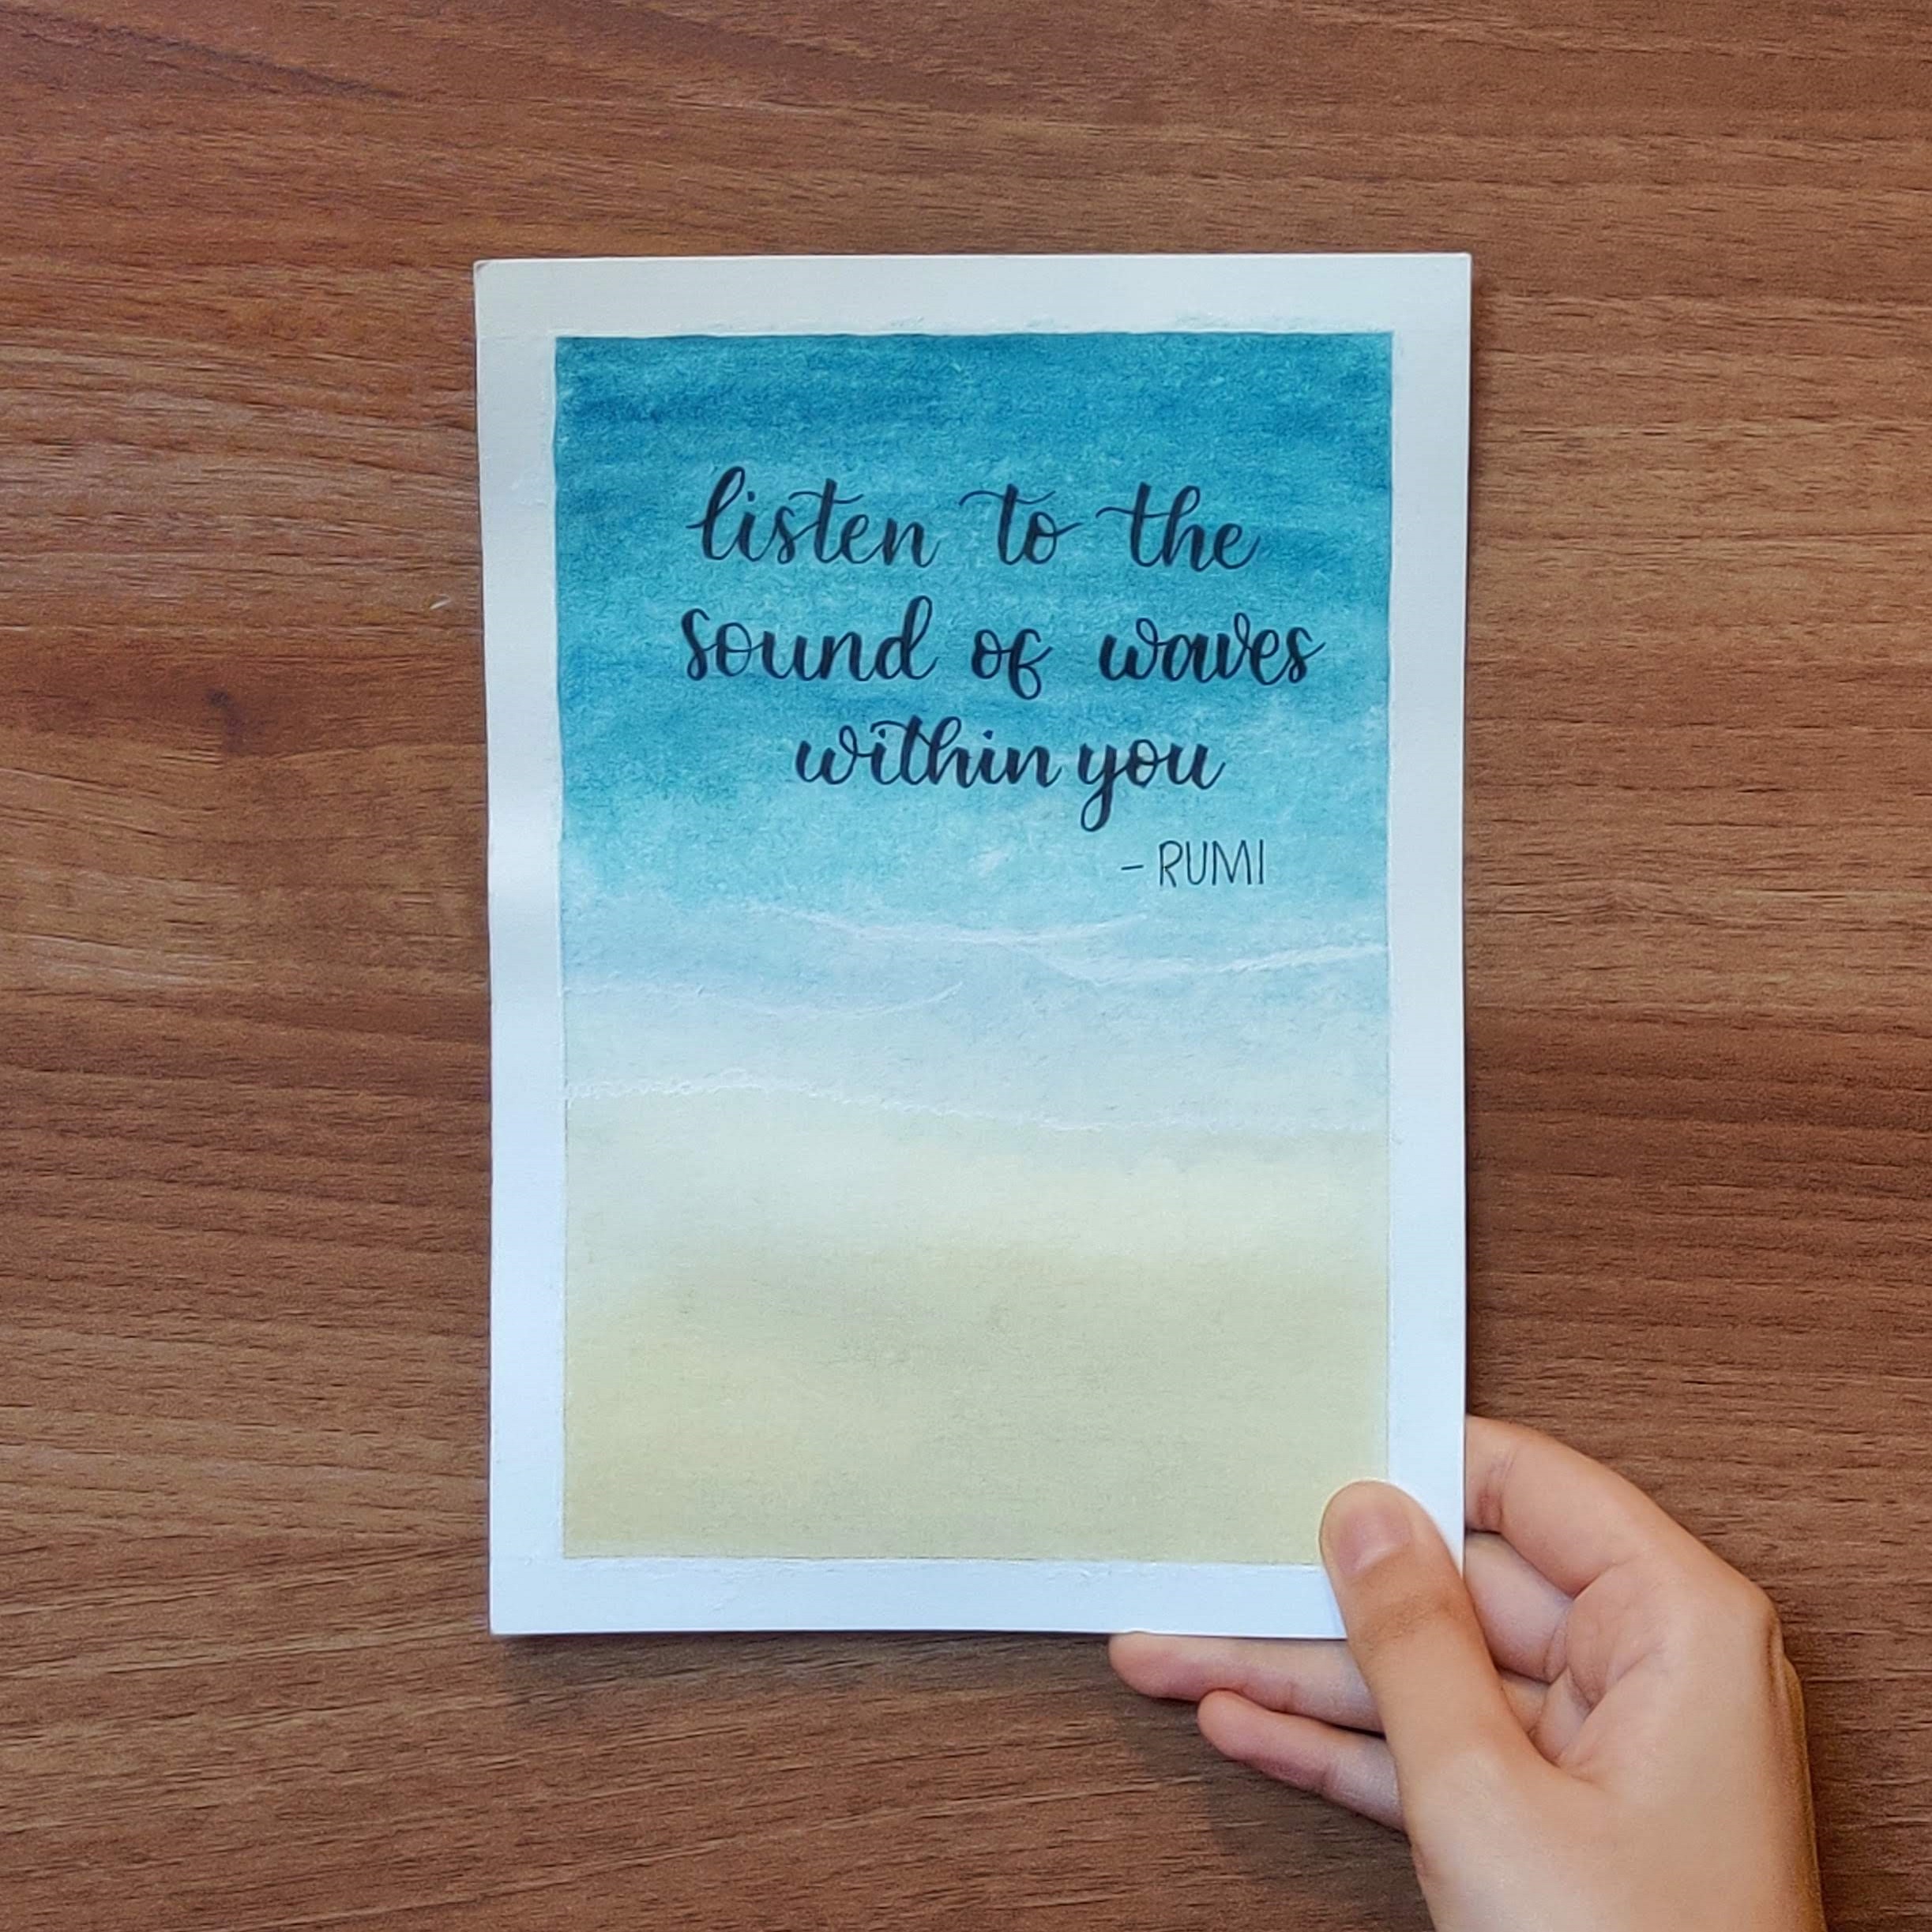 listen to the
sound of waves
within you
- RUMI